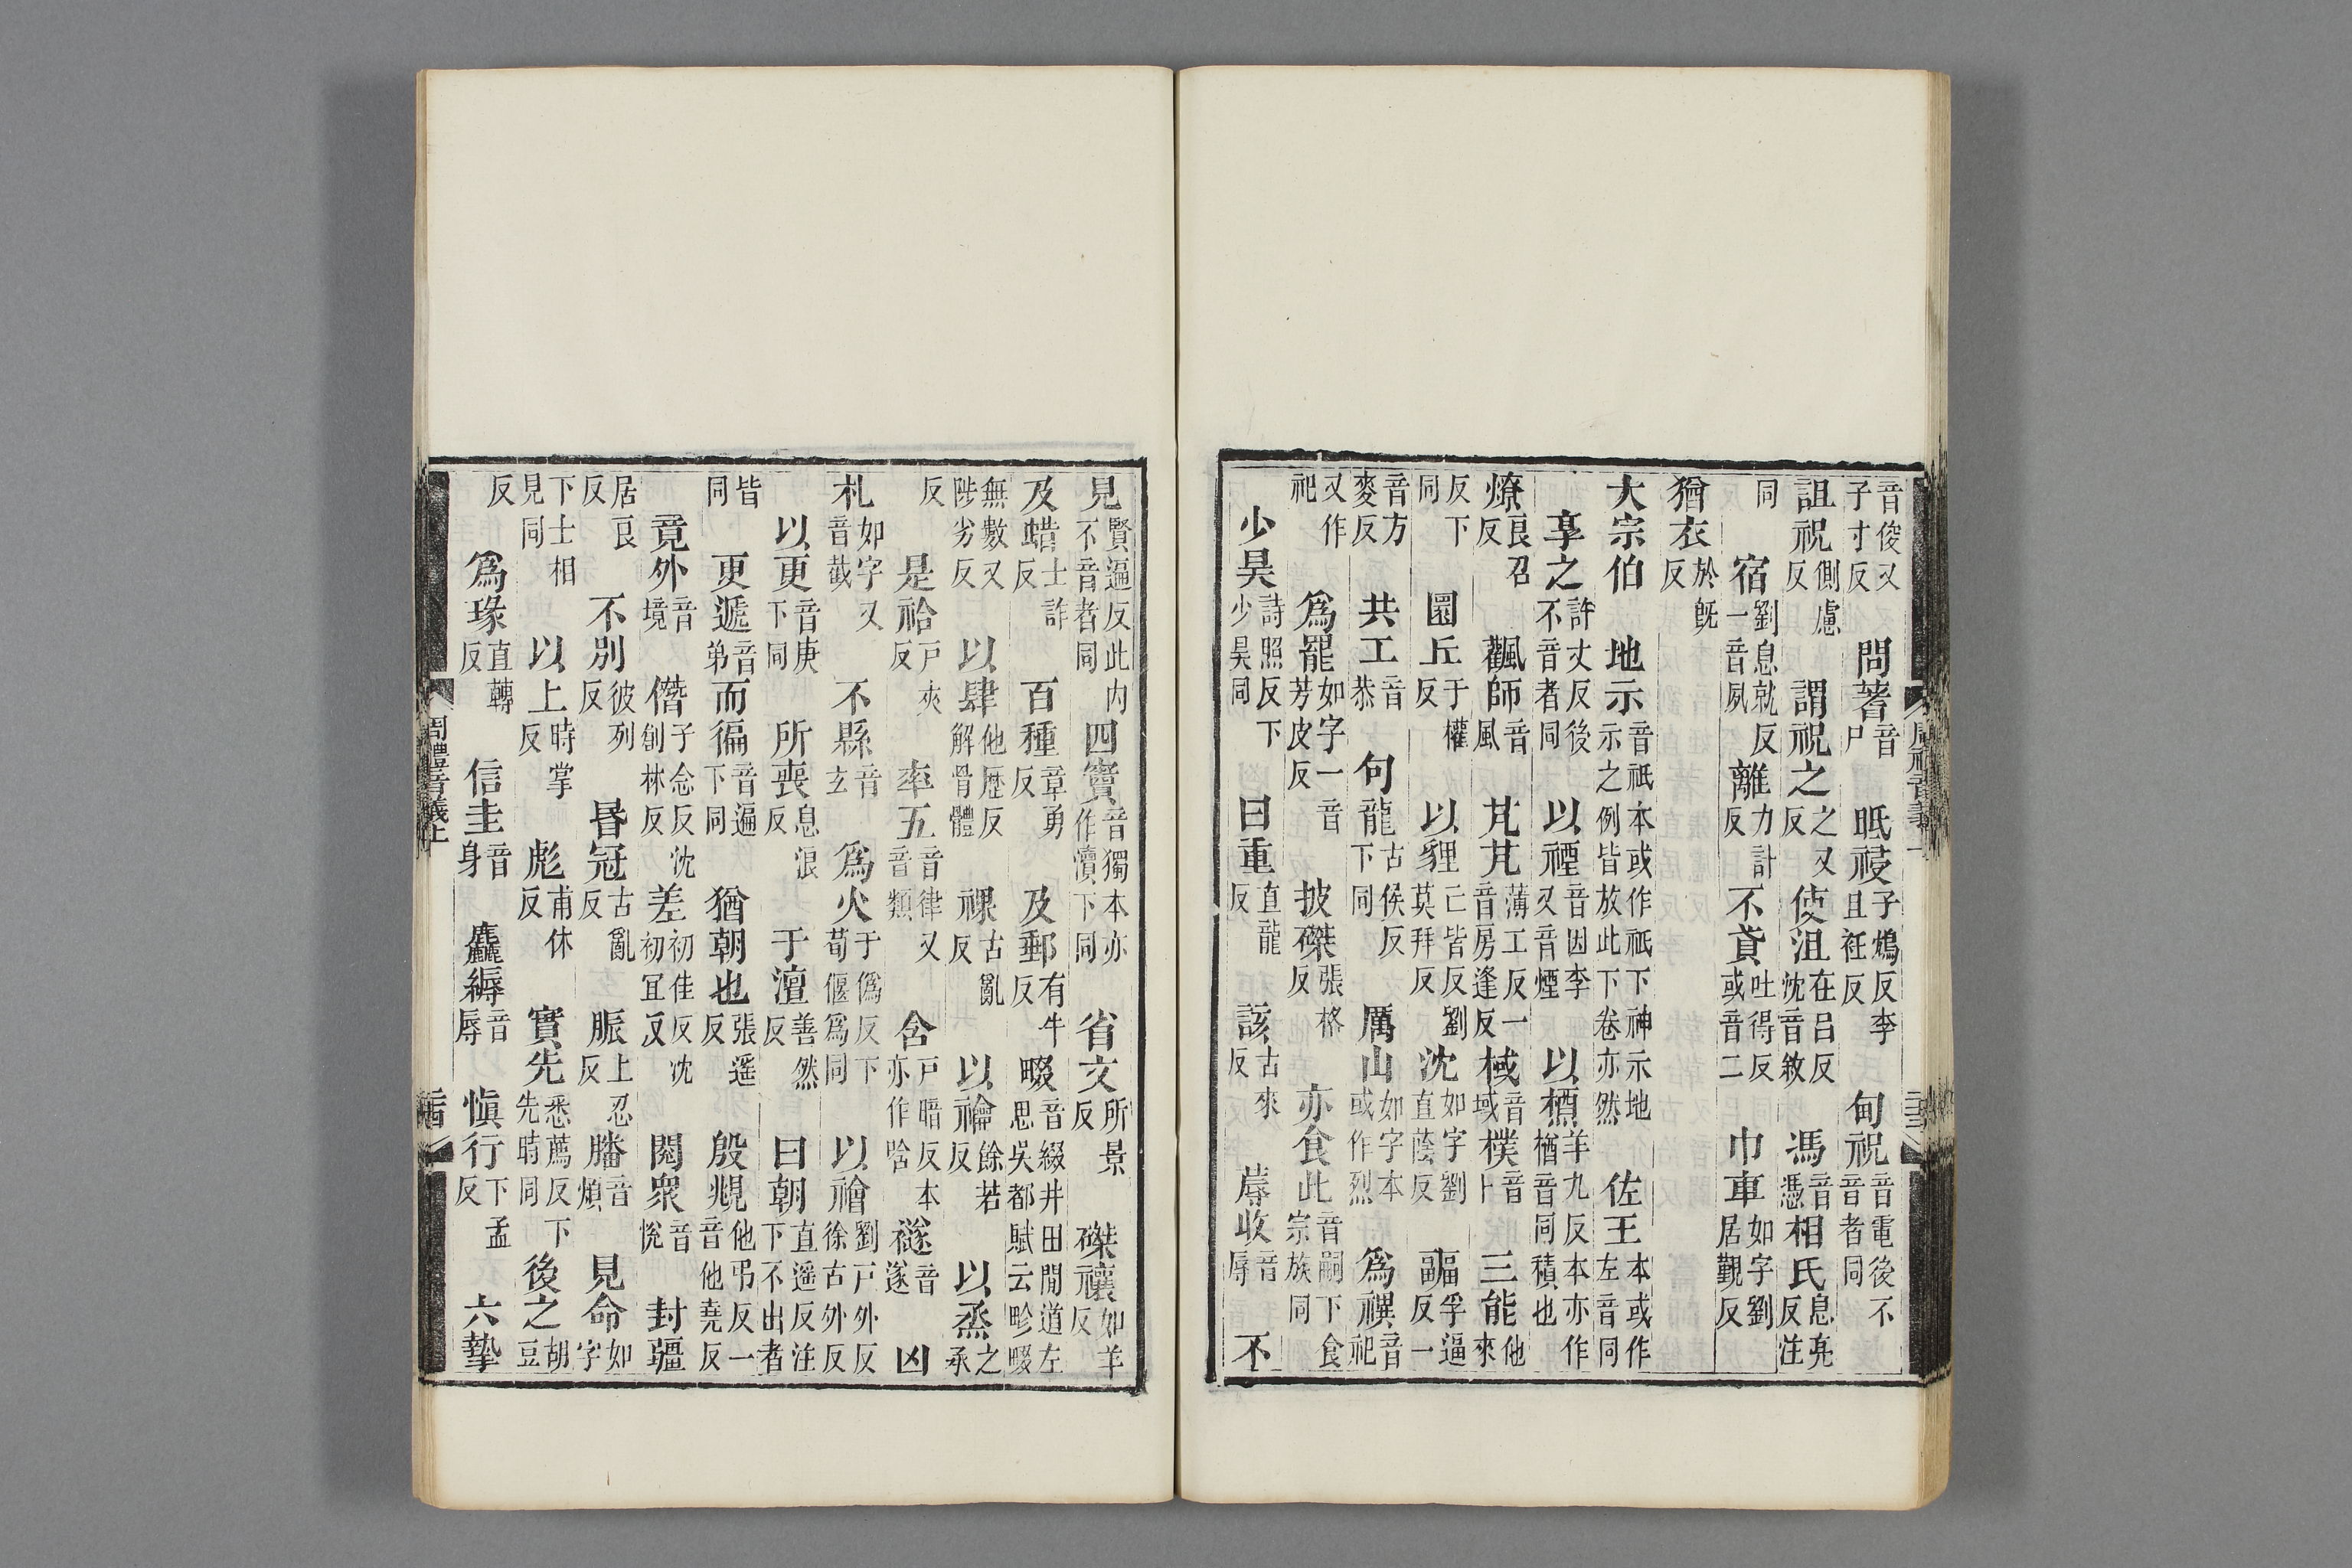 音俊又子寸反　問蓍音尸　眡祲子鴆反李且袵反　甸祝音電後不音者同
詛祝側慮反　謂祝之之又反　使沮在呂反沈音敘　馮音憑相氏息亮反注
同　宿劉息就反一音夙　離力計反　不貣吐得反或音二　巾車如字劉居覲反
猶衣於旣反
大宗伯　地示音祇本或作祇下神示地示之例皆放此下卷亦然　佐王本或作左音同
享之許丈反後不音者同　以禋音因李又音煙　以槱羊九反本亦作楢音同積也
燎良召反　飌師音風　芃芃薄工反一音房逢反　棫音域樸音卜　三能他來
反下同　圜丘于權反　以貍亡皆反劉莫拜反　沈如字劉直蔭反　疈孚逼反一
音方麥反　共工音恭　句龍古侯反下同　厲山如字本或作烈　爲禩音祀
又作祀　爲罷如字一音芳皮反　披磔張格反　亦食此音嗣下食宗族同
少昊詩照反下少昊同　曰重直龍反　該古來反　蓐收音辱　不
見賢遍反此内不音者同　四竇音獨本亦作瀆下同　省文所景反　磔禳如羊反
及蜡士詐反　百種章勇反　及郵有牛反　畷音綴井田閒道左思吳都賦云畛畷
無數又陟劣反　以肆他歷反解骨體　祼古亂反　以禴餘若反　以烝之承
反　是祫戸夾反　率五音律又音類　含戸暗反本亦作唅　襚音遂　凶
札如字又音截　不縣音玄　爲火于僞反下荀偃爲同　以禬劉戸外反徐古外反
以更音庚下同　所喪息浪反　于澶善然反　曰朝直遥反注下不出者
皆同　更遞音弟　而徧音遍下同　猶朝也張遥反　殷覜他弔反一音他堯反
竟外音境　僭子念反沈創林反　差初佳反沈初冝反　閱衆音悅　封疆
居良反　不別彼列反　昬冠古亂反　脤上忍反　膰音煩　見命如字
下士相見同　以上時掌反　彪甫休反　實先悉薦反下先時同　後之胡豆
反　爲瑑直轉反　信圭音身　麤縟音辱　愼行下孟反　六摯
周禮音義上